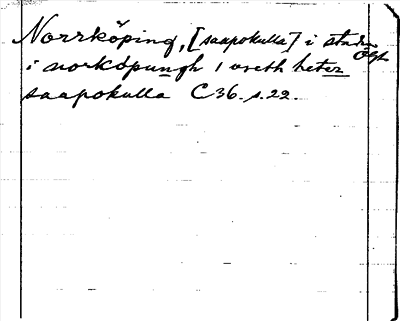 Norrköping, [saapokulla] i staden
Ögl.
i norkópungh / vreth heter
saapokulla C 36. s. 22.